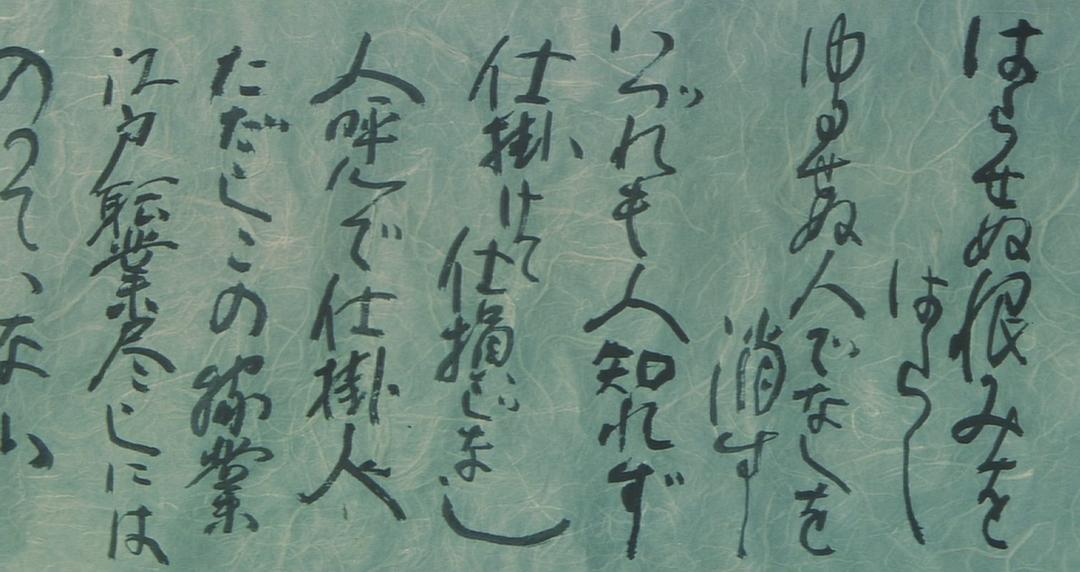 はらせぬ恨みを
はらし
ゆるせぬ人でなしを
消す
いづれも人知れず
仕掛けて
仕損じなし
人呼んで仕掛人
ただしこの稼業
江戸職業尽しには
のつて、ない